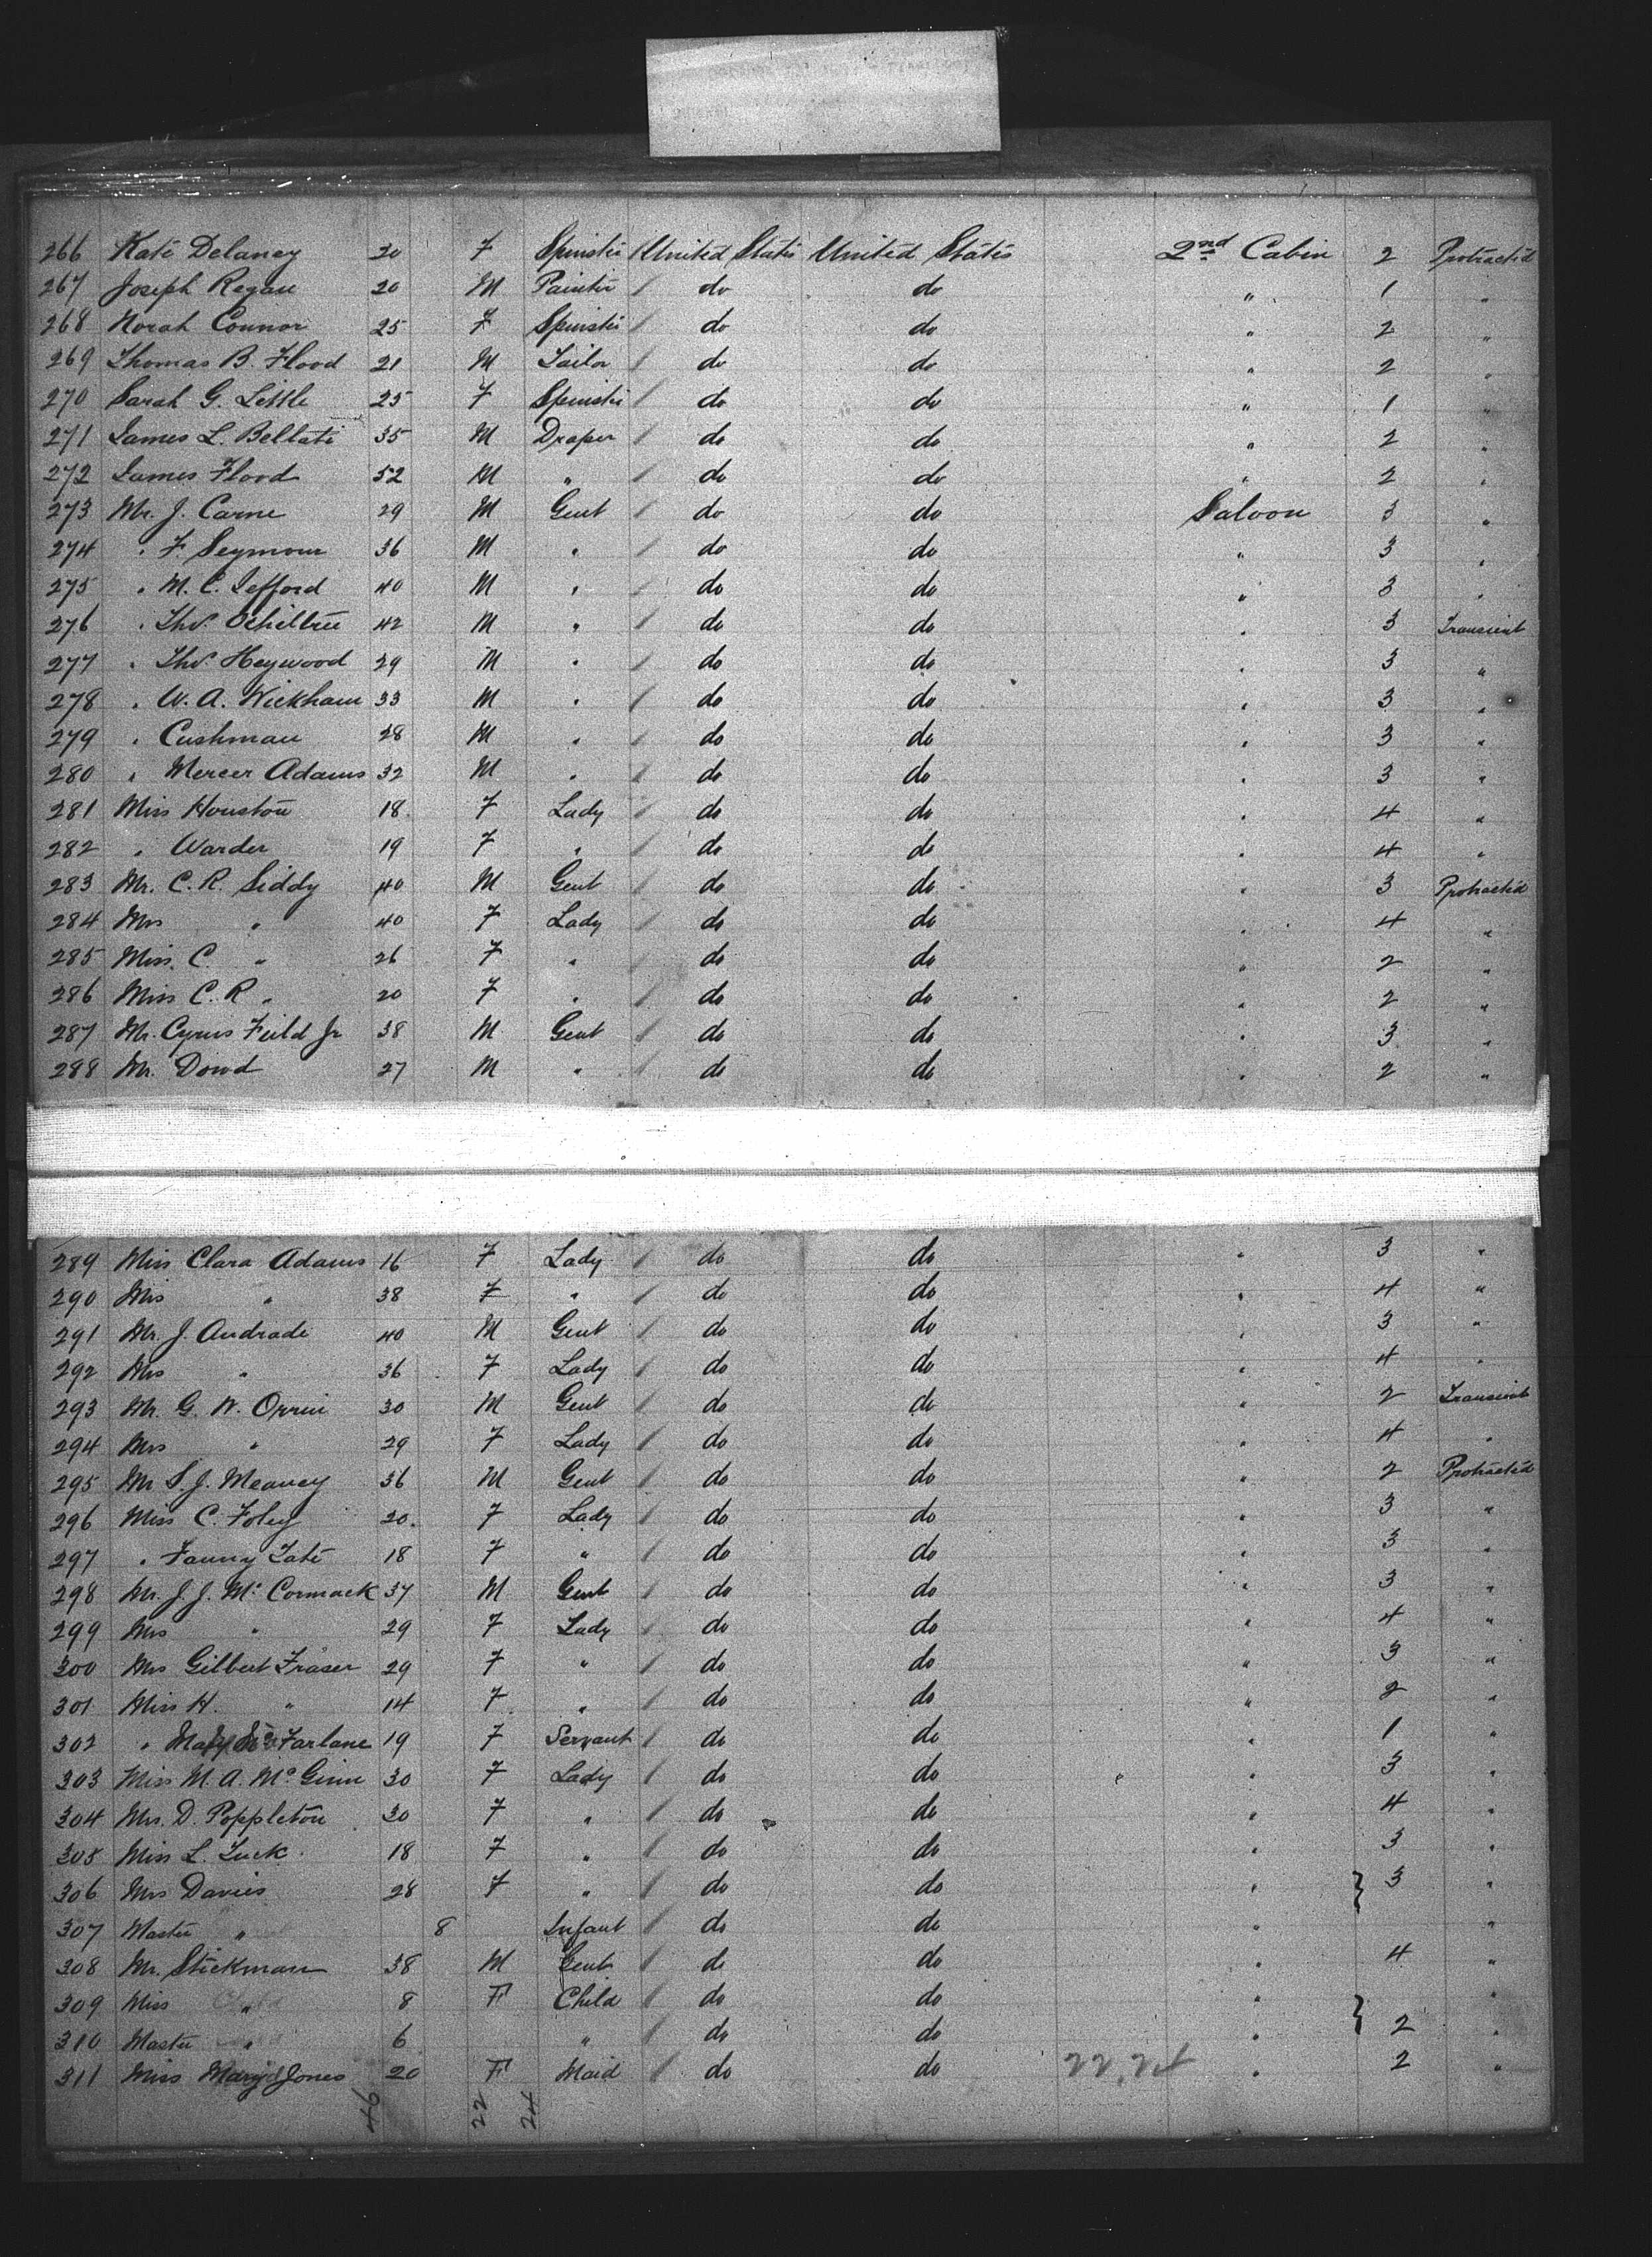 266 Kate Delaney 20 F Spinster / United States United States 2nd Cabin 2 Protracted
267 Joseph Regan 20 M Painter / do do " 1 "
268 Norah Connor 25 F Spinster / do do " 2 "
269 Thomas B. Flood 21 M Tailor / do do " 2 "
270 Sarah G. Little 25 F Spinster / do do " 1 "
271 James L. Bellate 35 M Draper / do do " 2 "
272 James Flood 52 M " / do do " 2 "
273 Mr. J. Carne 29 M Gent / do do Saloon 3 "
274 " F. Seymour 36 M " / do do " 3 "
275 " M. C. Lefford 40 M " / do do " 3 "
276 " Thos. Ochiltree 42 M " / do do " 3 Transient
277 " Thos. Heywood 29 M " / do do " 3 "
278 " W. A. Wickham 33 M " / do do " 3 "
279 " Cushman 28 M " / do do " 3 "
280 " Mercer Adams 32 M " / do do " 3 "
281 Miss Houston 18 F Lady / do do " 4 "
282 " Warder 19 F " / do do " 4 "
283 Mr. C. R. Siddy 40 M Gent / do do " 3 Protracted
284 Mrs " 40 F Lady / do do " 4 "
285 Miss C. " 26 F " / do do " 2 "
286 Miss C. R " 20 F " / do do " 2 "
287 Mr. Cyrus Feild Jr 38 M Gent / do do " 3 "
288 Mr. Dowd 27 M " / do do " 2 "
289 Miss Clara Adams 16 F Lady / do do " 3 "
290 Mrs " 38 F " / do do " 4 "
291 Mr. J. Andrade 40 M Gent / do do " 3 "
292 Mrs " 36 F Lady / do do " 4 "
293 Mr. G. W. Orrin 30 M Gent / do do " 2 Transient
294 Mrs " 29 F Lady / do do " 4 "
295 Mr S. J. Meaney 36 M Gent / do do " 2 Protracted
296 Miss C. Foley 20 F Lady / do do " 3 "
297 " Fanny Tate 18 F " / do do " 3 "
298 Mr. J. J. Mc Cormack 37 M Gent / do do " 3 "
299 Mrs " 29 F Lady / do do " 4 "
300 Mrs Gilbert Fraser 29 F " / do do " 3 "
301 Miss H. " 14 F " / do do " 2 "
302 " Mary McFarlane 19 F Servant / do do " 1 "
303 Miss M. A. Mc Ginn 30 F Lady / do do " 3 "
304 Mrs. D. Poppleton 30 F " / do do " 4 "
305 Miss L. Tuck 18 F " / do do " 3 "
306 Mrs Davies 28 F " / do do " } 3 "
307 Master " 8 Infant / do do " "
308 Mr. Stickman 38 M Gent / do do " 4 "
309 Miss " 8 F Child / do do " "
310 Master " 6 " / do do " } 2 "
311 Miss Mary Jones 20 F Maid / do do 22.24 " 2 "
46 22 24